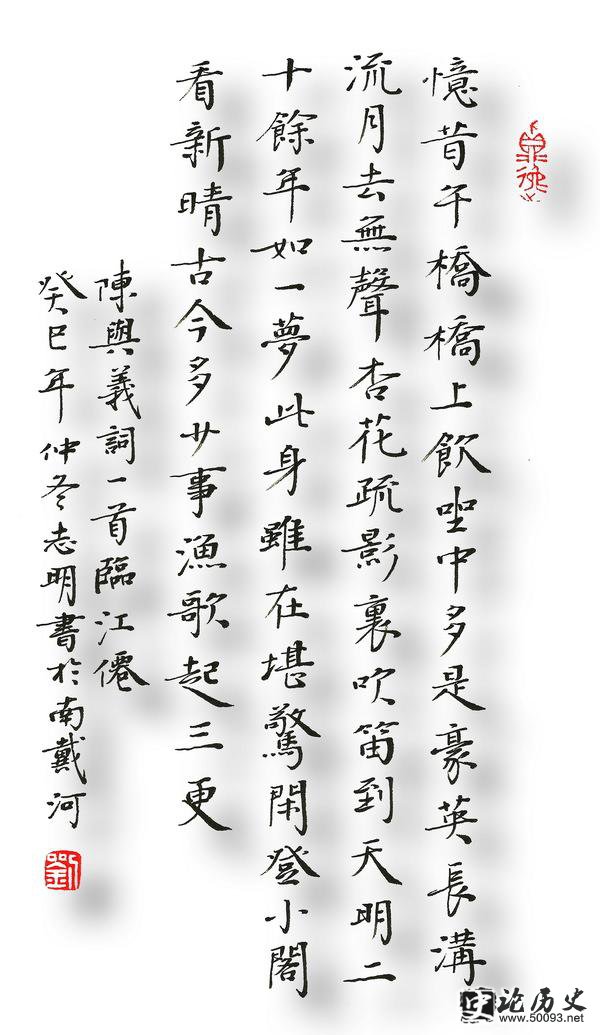 憶昔午橋橋上飲坐中多是豪英長溝
流月去無聲杏花疏影裏吹笛到天明二
十餘年如一夢此身雖在堪驚閑登小閣
看新晴古今多少事漁歌起三更
陳與義詞一首臨江僊
癸巳年仲冬志明書於南戴河
劉
史论历史
www.50093.net